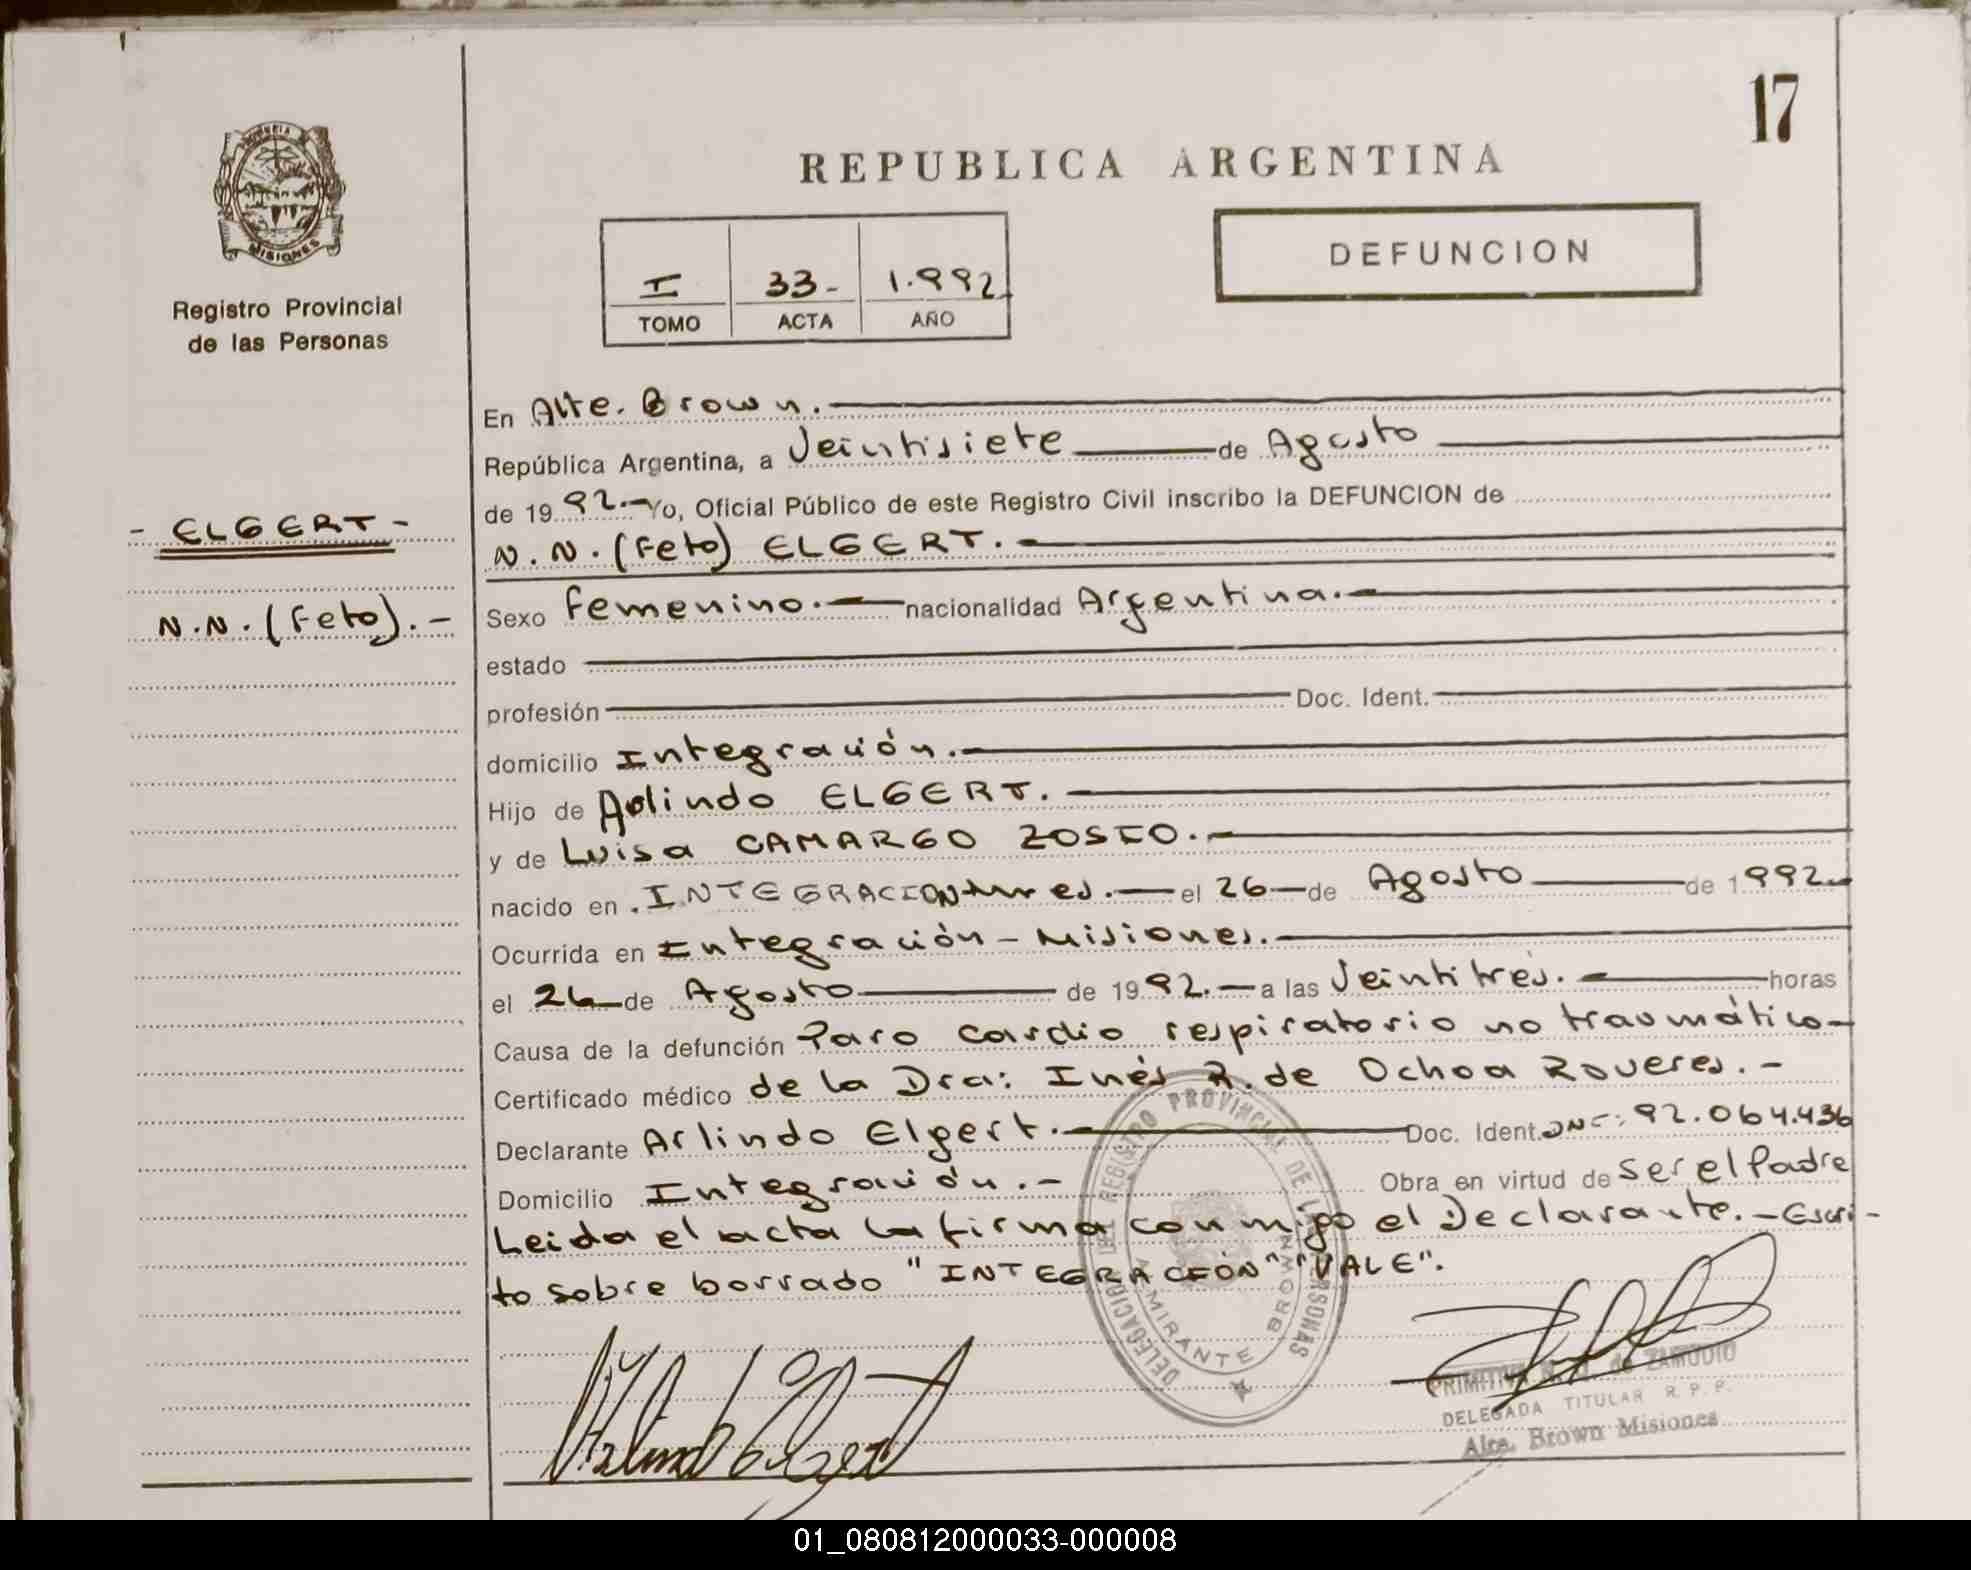 17
PROVINCIA DE
MISIONES
Registro Provincial
de las Personas
REPUBLICA ARGENTINA
I 33- 1.992
TOMO ACTA AÑO
DEFUNCION
- ELGERT -
N.N. (Feto).-
En Alte. Brown.
República Argentina, a Veintisiete de Agosto
de 1992.- Yo, Oficial Público de este Registro Civil inscribo la DEFUNCION de
N.N. (Feto) ELGERT.
Sexo Femenino.- nacionalidad Argentina.-
estado
profesión Doc. Ident.
domicilio Integración.-
Hijo de Arlindo ELGERT.
y de Luisa CAMARGO ZOSIO.-
nacido en INTEGRACION el 26 de Agosto de 1992.
Ocurrida en Integración - Misiones.
el 26 de Agosto de 1992.- a las Veintitrés.- horas
Causa de la defunción Paro cardio respiratorio no traumático-
Certificado médico de la Dra: Inés R. de Ochoa Roveres.-
Declarante Arlindo Elgert.- Doc. Ident. 92.064.436
Domicilio Integración.- Obra en virtud de ser el Padre
Leida el acta la firma conmigo el Declarante.- Escri-
to sobre borrado "INTEGRACIÓN" "VALE".
DELEGACION DEL REGISTRO PROVINCIAL DE LAS PERSONAS
ALMIRANTE BROWN
PRIMITIVA N. de ZAMUDIO
DELEGADA TITULAR R. P. P.
Alte. Brown Misiones
01_080812000033-000008